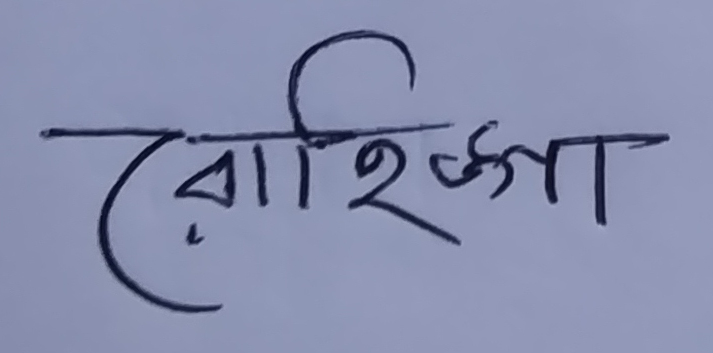 রোহিঙ্গা